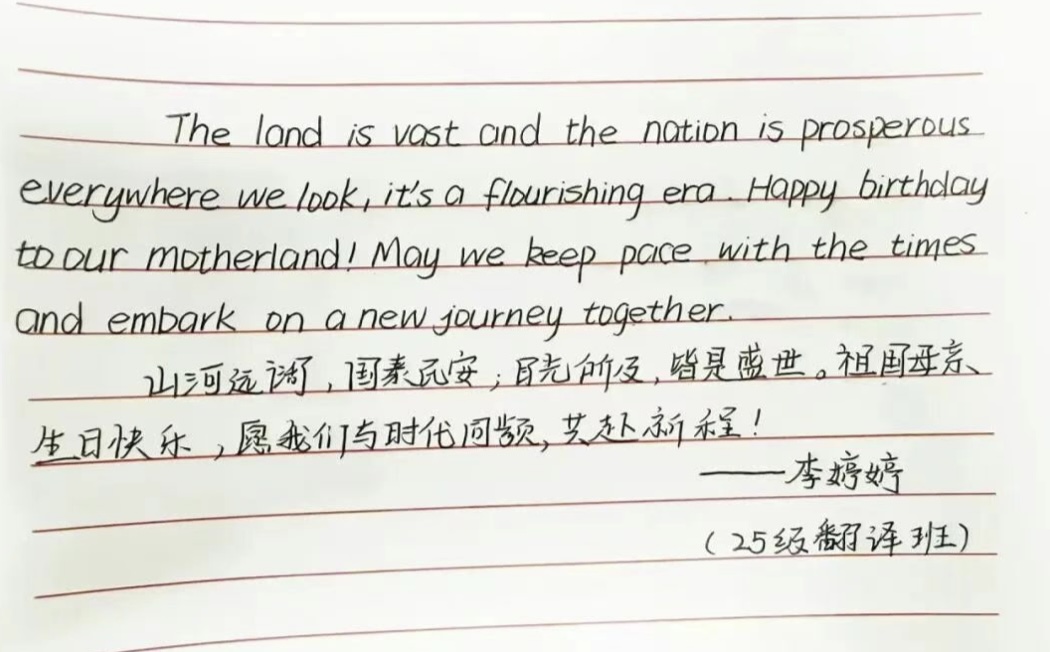 The land is vast and the nation is prosperous
everywhere we look, it's a flourishing era. Happy birthday
to our motherland! May we keep pace with the times
and embark on a new journey together.
山河远阔，国泰民安；目光所及，皆是盛世。祖国母亲、
生日快乐，愿我们与时代同频，共赴新程！
——李婷婷
（25级翻译班）